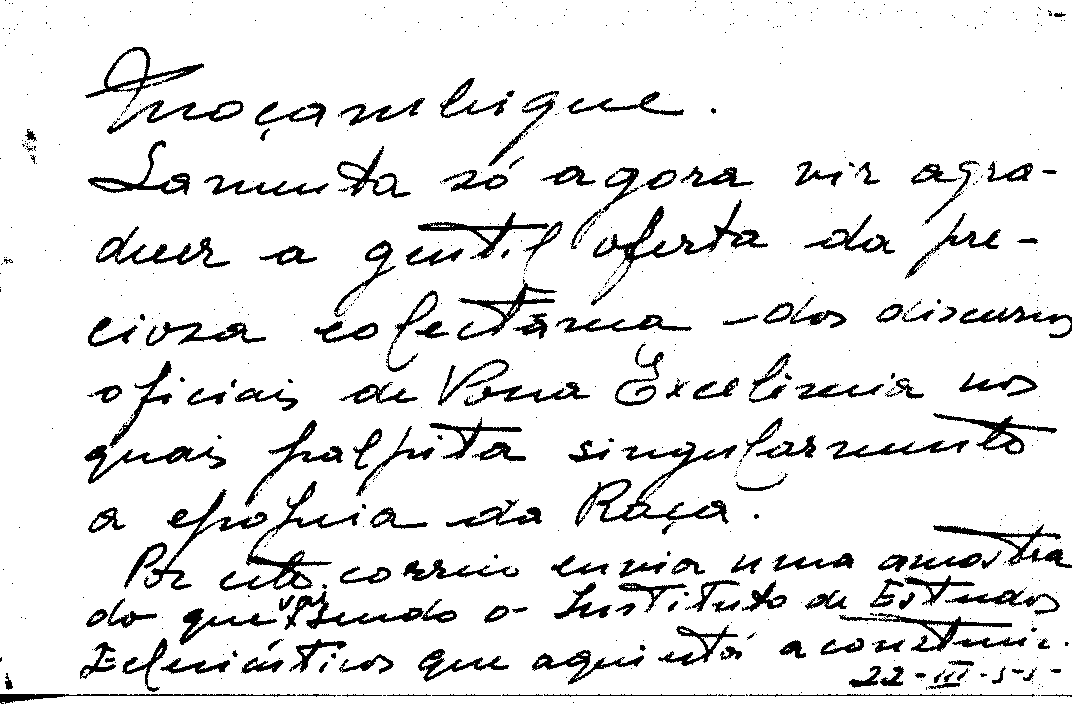 Moçambique.
Lamenta só agora vir agra-
decer a gentil oferta da pre-
ciosa colectânea dos discursos
oficiais de Vossa Excelência nos
quais palpita singularmente
a epopeia da Raça.
Por este correio envia uma amostra
do que vai sendo o Instituto de Estudos
Eclesiásticos que aqui está a construir.
22-III-55-